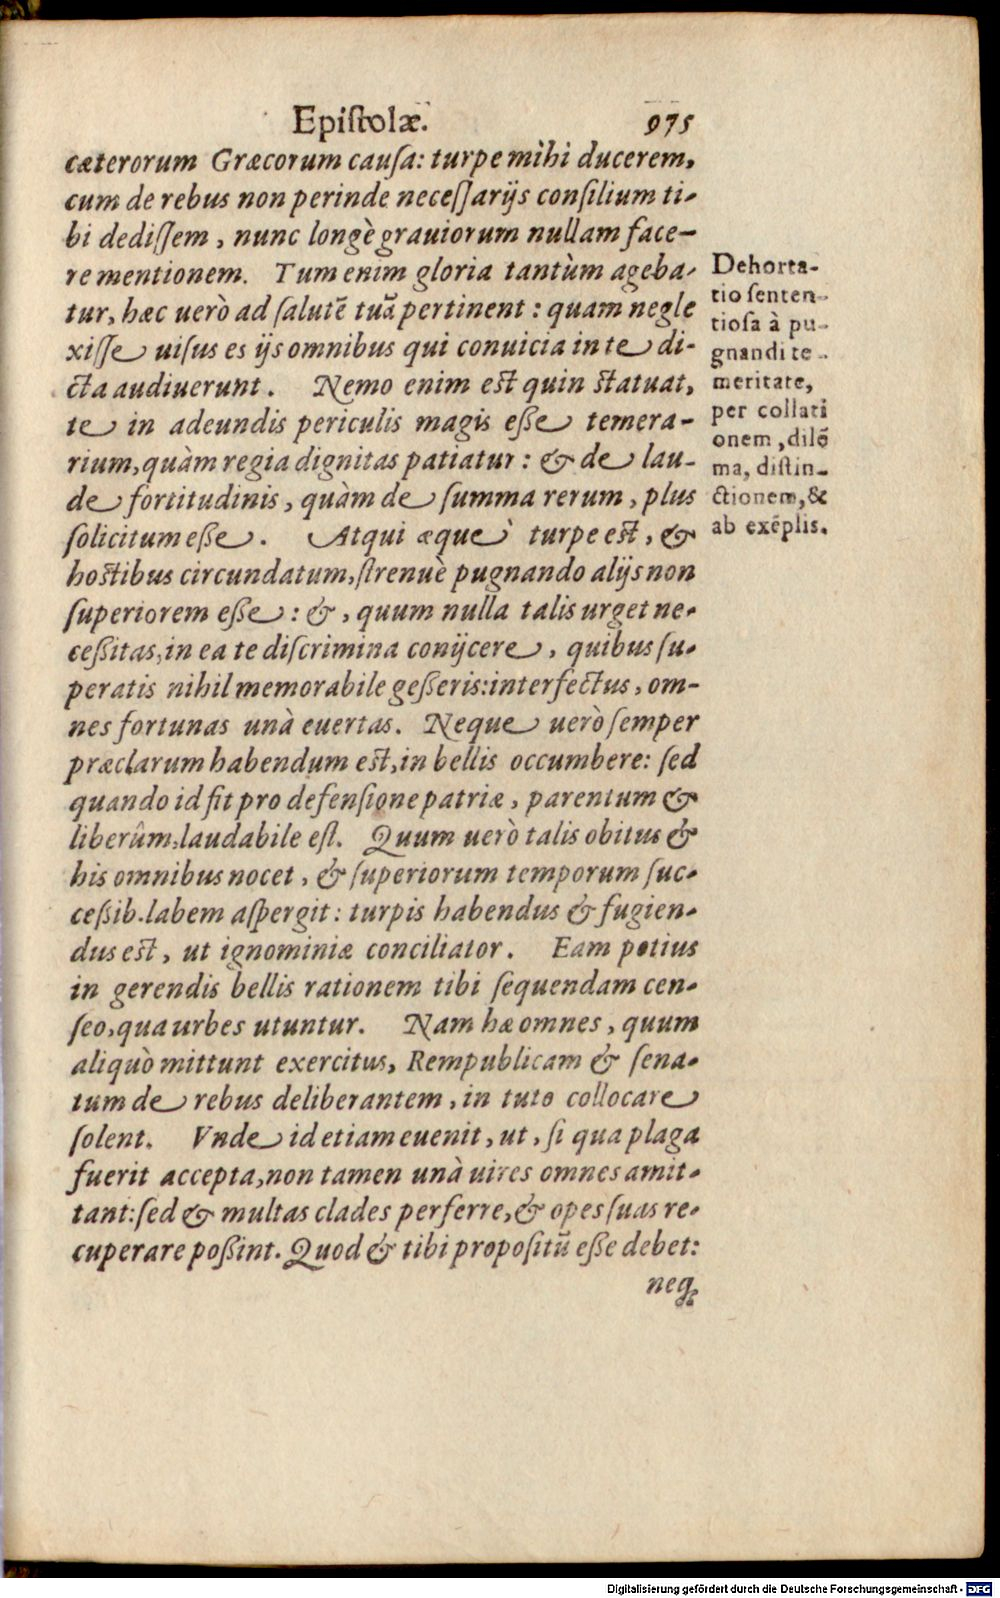 Epiſtolæ. 975
cæterorum Græcorum cauſa: turpe mihi ducerem,
cum de rebus non perinde neceſſarijs conſilium ti-
bi dediſſem, nunc longè grauiorum nullam face-
re mentionem. Tum enim gloria tantùm ageba-
tur, hæc uerò ad ſalutẽ tuã pertinent: quam negle
xiſſe uiſus es ijs omnibus qui conuicia in te di-
cta audiuerunt. Nemo enim eſt quin ſtatuat,
te in adeundis periculis magis eſſe temera-
rium, quàm regia dignitas patiatur: & de lau-
de fortitudinis, quàm de ſumma rerum, plus
ſolicitum eſſe. Atqui æquè turpe eſt, &
hoſtibus circundatum, ſtrenuè pugnando alijs non
ſuperiorem eſſe: &, quum nulla talis urget ne-
ceßitas, in ea te diſcrimina conijcere, quibus ſu-
peratis nihil memorabile geßeris: interfectus, om-
nes fortunas unà euertas. Neque uerò ſemper
præclarum habendum eſt, in bellis occumbere: ſed
quando id fit pro defenſione patriæ, parentum &
liberûm, laudabile eſt. Quum uerò talis obitus &
his omnibus nocet, & ſuperiorum temporum ſuc-
ceßib. labem aſpergit: turpis habendus & fugien-
dus eſt, ut ignominiæ conciliator. Eam potius
in gerendis bellis rationem tibi ſequendam cen-
ſeo, qua urbes utuntur. Nam hæ omnes, quum
aliquò mittunt exercitus, Rempublicam & ſena-
tum de rebus deliberantem, in tuto collocare
ſolent. Vnde id etiam euenit, ut, ſi qua plaga
fuerit accepta, non tamen unà uires omnes amit-
tant: ſed & multas clades perferre, & opes ſuas re-
cuperare poßint. Quod & tibi propoſitũ eſſe debet:
neq;
Dehorta-
tio ſenten-
tioſa à pu-
gnandi te-
meritate,
per collati
onem, dilẽ
ma, diſtin-
ctionem, &
ab exẽplis.
Digitalisierung gefördert durch die Deutsche Forschungsgemeinschaft - DFG